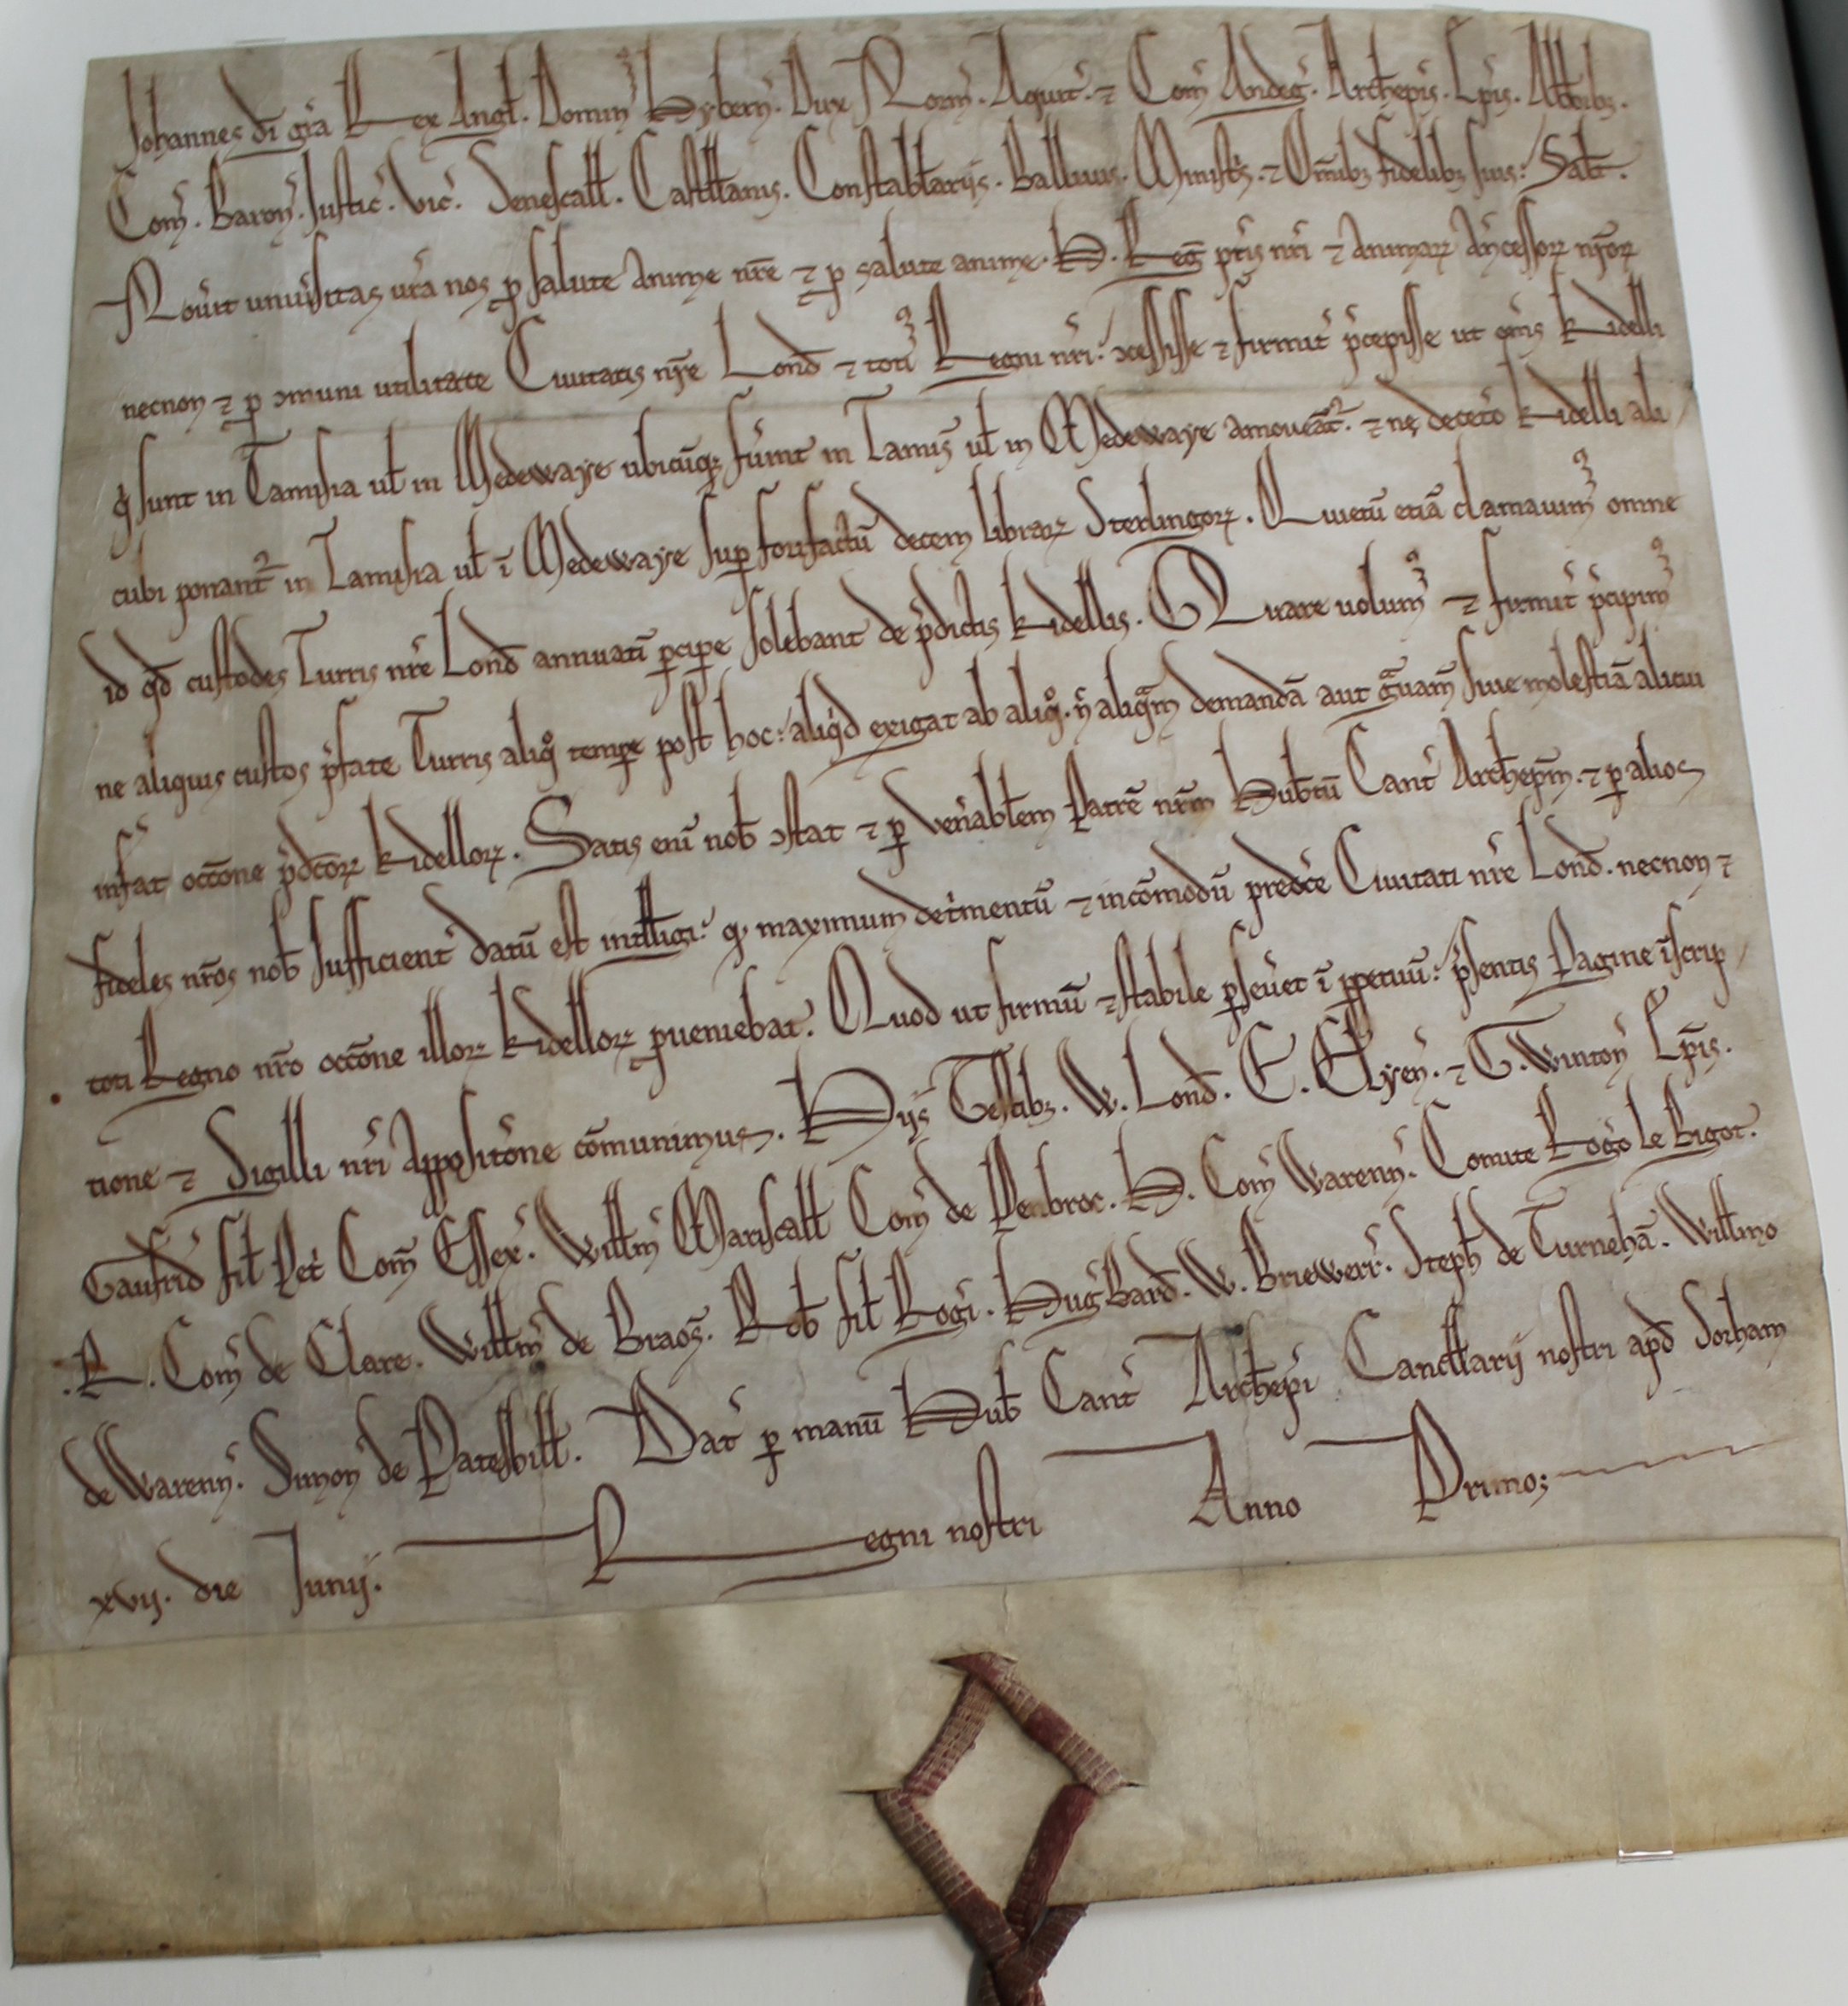 Johannes di gra Rex Angl. Domin Hybern. Dux Norm. Aquit. ⁊ Com Andeg. Archiepis. Epis. Abbtibz.
Com. Baron. Justic. Vic. Senescall. Castllanis. Constablariis. Ballivis. Ministris. ⁊ Omibz fidelibz suis. Salt.
Noverit univsitas vra nos p salute anime nre ⁊ p salute anime. H. Reg pris nri ⁊ animarꝝ ancessorꝝ nrorꝝ
necnon ⁊ p ꝯmuni utilitate Civitatis nre Lond ⁊ toti Regni nri. ꝯcessisse ⁊ firmit pcepisse ut oms Kidelli
q sunt in Tamisia ul in Medewaye ubicuqꝫ fuint in Tamis ul in Medewaye amoveant. ⁊ ne deceto Kidelli ali
cubi ponant in Tamisia ul i Medewaye sup forisfactu decem librarꝝ Sterlingorꝝ. Quietu etia clamavim omne
id qd custodes Turris nre Lond annuati pcipe solebant de pdictis Kidellis. Quare volum ⁊ firmit pcipim
ne aliquis custos pfate Turris aliqo tempe post hoc: aliqid exigat ab aliqo. n aliqam demanda aut gravam sive molestia alicui
infat occone pdcorꝝ Kidellorꝝ. Satis eni nob ꝯstat ⁊ p venablem Patre nrm Hubtu Cant Archiepm. ⁊ p alios
fideles nros nob sufficient datu est intlligi. q maximum detmentu ⁊ incomodu predce Civitati nre Lond. necnon ⁊
toti Regno nro occone illorꝝ Kidellorꝝ pveniebat. Quod ut firmu ⁊ stabile pseveret i ppetuu: psentis Pagine iscrip
tione ⁊ Sigilli nri Appositone comunimus. Hijs Testibz. W. Lond. E. Elyen. ⁊ G. Winton Epis.
Gaufrid fil Pet Com Essex. Willm Marescall Com de Penbroc. H. Com Warenn. Comite Rogo le Bigot.
R. Com de Clare. Willm de Braos. Rob fil Rogi. Hug Bard. W. Briewerr. Steph de Turneha. Willmo
de Warenn. Simon de Pateshill. Dat p manu Hub Cant Archiepi Cancllarij nostri apd Sorham
xvij. die Junij. Regni nostri Anno Primo;